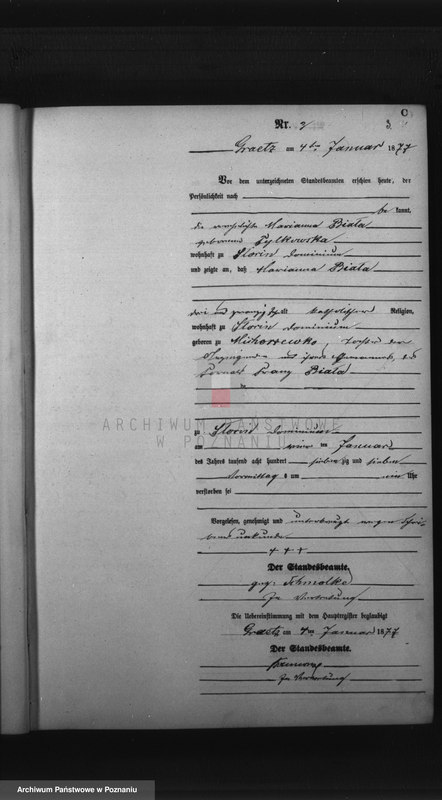 C
Nr. 3
Graetz am 4ten Januar 1877
Vor dem unterzeichneten Standesbeamten erschien heute, der
Persönlichkeit nach
be kannt,
die Marianna Biała
geborene Fylkowska
wohnhaft zu Słocin Dominium
und zeigte an, daß Marianna Biała
drei und zwanzig Jahr alt katholischer Religion,
wohnhaft zu Słocin Dominium
geboren zu Michorzewko, Tochter der
Anzeigende und ihres Ehemannes, des
Fornals Franz Biała
zu Słocin Dominium
am ten Januar
des Jahres tausend acht hundert siebenzig und sieben
Vormittag s um Uhr
verstorben sei
Vorgelesen, genehmigt und wegen Schrei
bensunkunde
+ + +
Der Standesbeamte.
gez. Schmolke
In Vertretung
Die Uebereinstimmung mit dem Hauptregister beglaubigt
Graetz am 4ten Januar 1877
Der Standesbeamte.
In Vertretung
ARCHIWUM PAŃSTWOWE
W POZNANIU
Archiwum Państwowe w Poznaniu